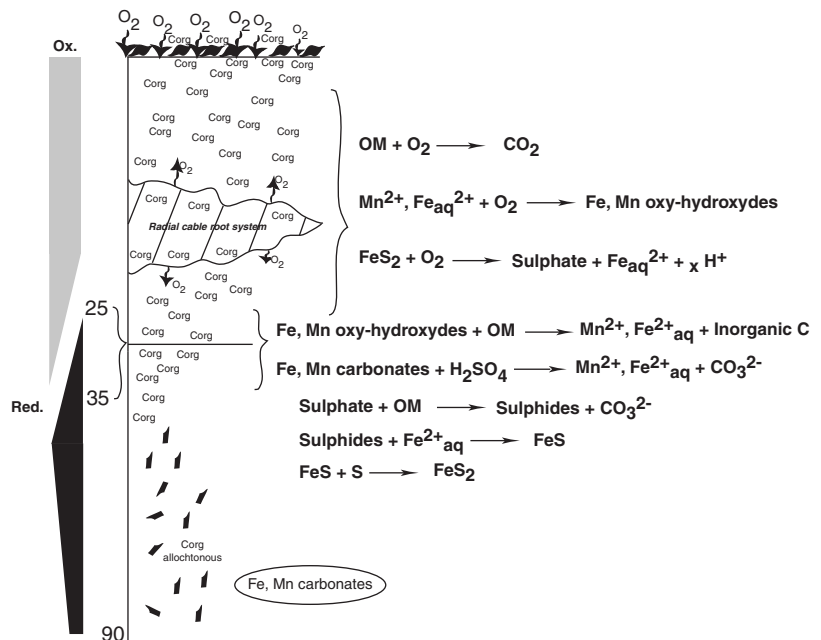 O2 O2 O2 O2 O2 O2
Ox.
Corg Corg
Corg Corg Corg Corg Corg
Corg
Corg
Corg
Corg
Corg Corg
Corg Corg Corg
Corg
Corg Corg
Corg O2
Corg O2
Corg Corg
Corg
Radial cable root system
Corg Corg Corg
O2
O2 Corg
Corg Corg Corg
Corg
Corg Corg
Corg Corg
Corg
Corg
Corg
Corg
OM + O2 → CO2
Mn2+, Feaq2+ + O2 → Fe, Mn oxy-hydroxydes
FeS2 + O2 → Sulphate + Feaq2+ + x H+
25
Fe, Mn oxy-hydroxydes + OM → Mn2+, Fe2+aq + Inorganic C
Fe, Mn carbonates + H2SO4 → Mn2+, Fe2+aq + CO32-
Red.
35
Sulphate + OM → Sulphides + CO32-
Sulphides + Fe2+aq → FeS
FeS + S → FeS2
Corg
allochtonous
Fe, Mn carbonates
90